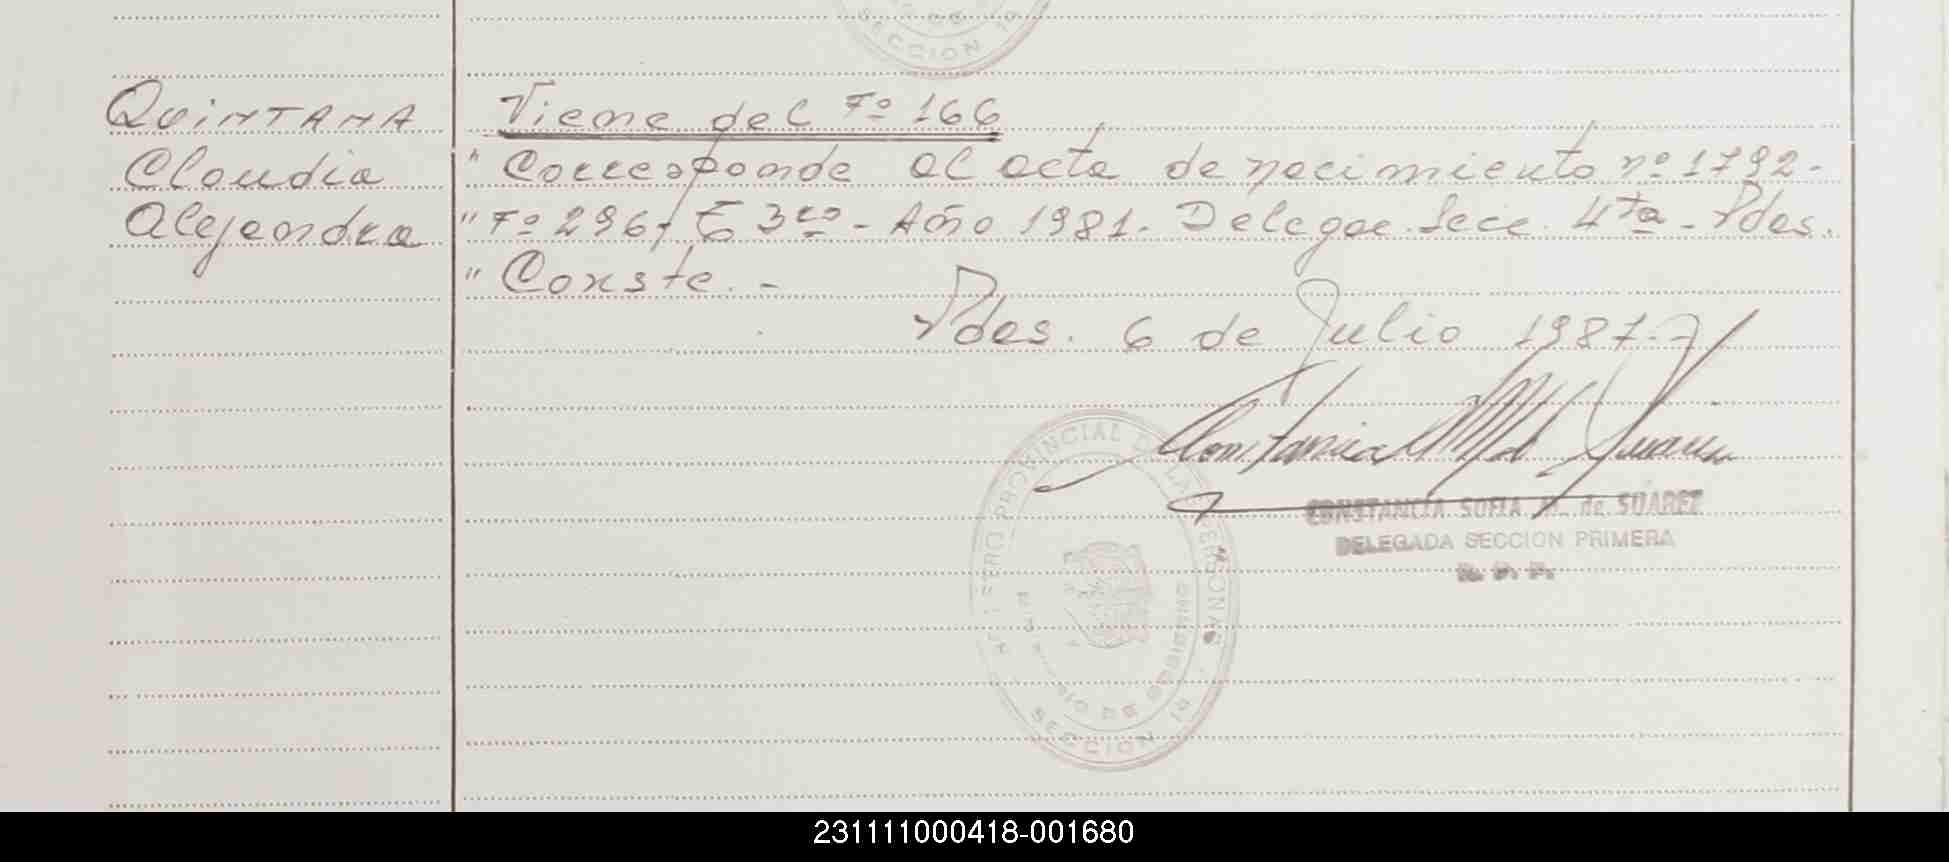 SECCION 1ª
QUINTANA
Claudia
Alejandra
Viene del Fº 166
" Corresponde al acta de nacimiento nº 1792-
" Fº 296, Tº 3ro - Año 1981. Delegac. Secc. 4ta - Pdas.
" Conste. -
Pdas. 6 de Julio 1987.-
Constancia M. de Suarez
CONSTANCIA SOFIA M. de SUAREZ
DELEGADA SECCION PRIMERA
R. P. P.
REGISTRO PROVINCIAL DE LAS PERSONAS
MINISTERIO DE GOBIERNO
SECCION 1ª
231111000418-001680